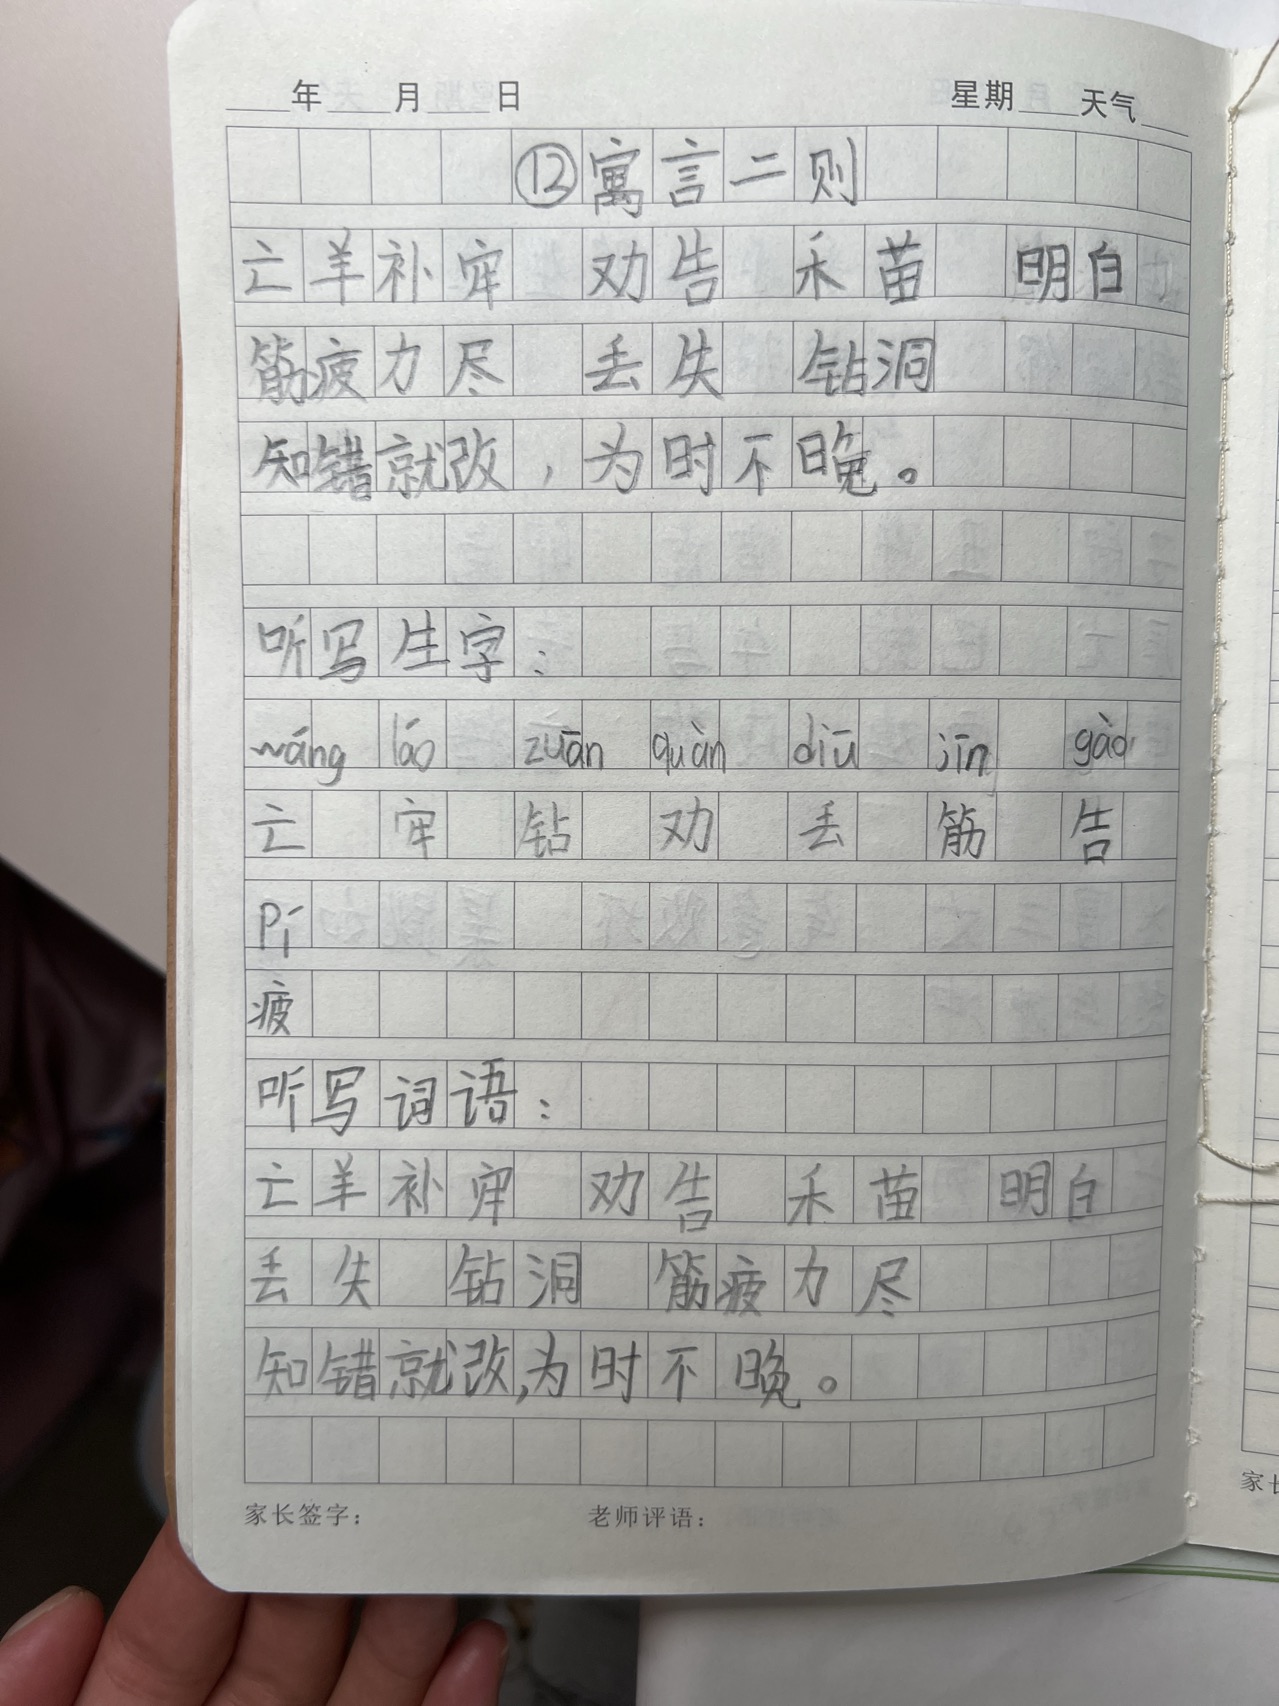 年 月 日 星期 天气
⑫寓言二则
亡羊补牢 劝告 禾苗 明白
筋疲力尽 丢失 钻洞
知错就改，为时不晚。
听写生字：
wáng láo zuān quàn diū jīn gào
亡 牢 钻 劝 丢 筋 告
pí
疲
听写词语：
亡羊补牢 劝告 禾苗 明白
丢失 钻洞 筋疲力尽
知错就改，为时不晚。
家长签字： 老师评语：